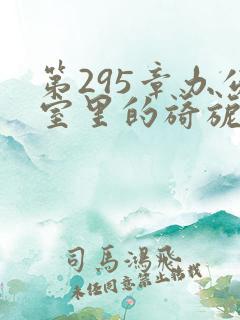 第295章办公
室里的旖旎
司马鸿飞
未经同意禁止转载